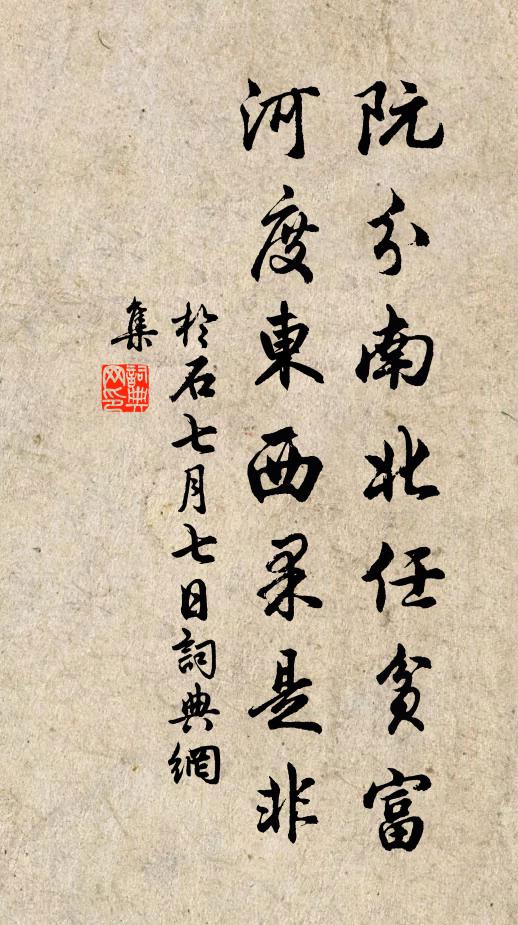 阮分南北任貧富
河度東西果是非
於石七月七日詞典網
集
詞典
网印